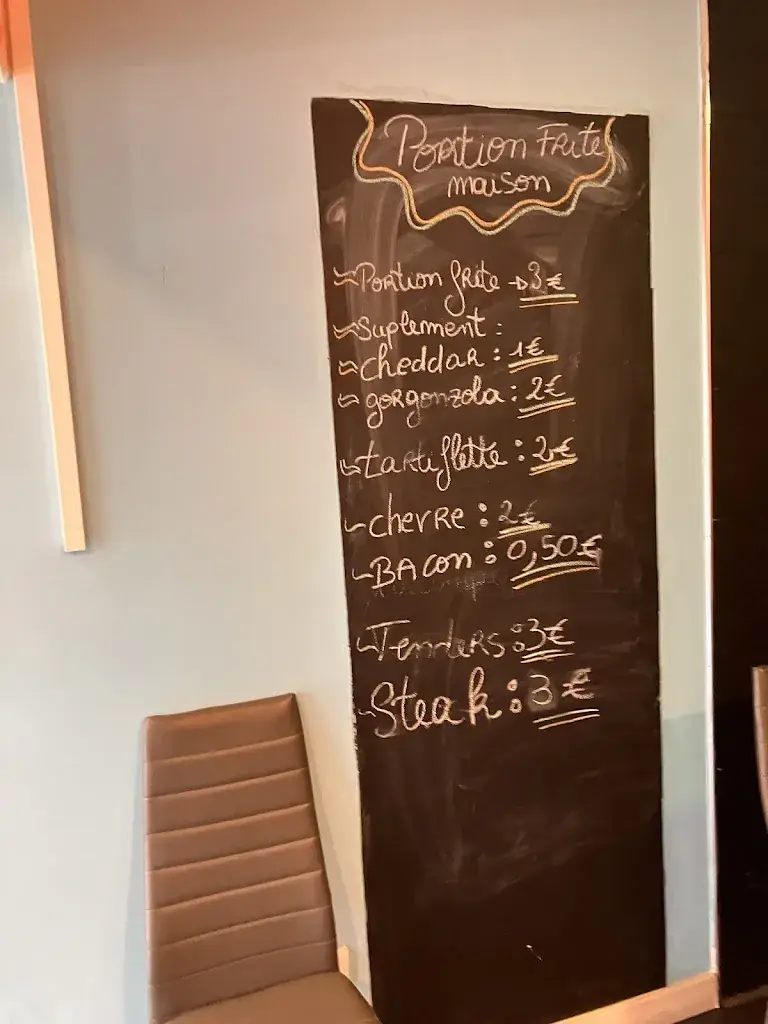 Portion Frite
maison
Portion frite → 3 €
Suplement :
cheddar : 1€
gorgonzola : 2€
tartiflette : 2€
chevre : 2€
BAcon : 0,50€
Tenders : 3€
Steak : 3 €